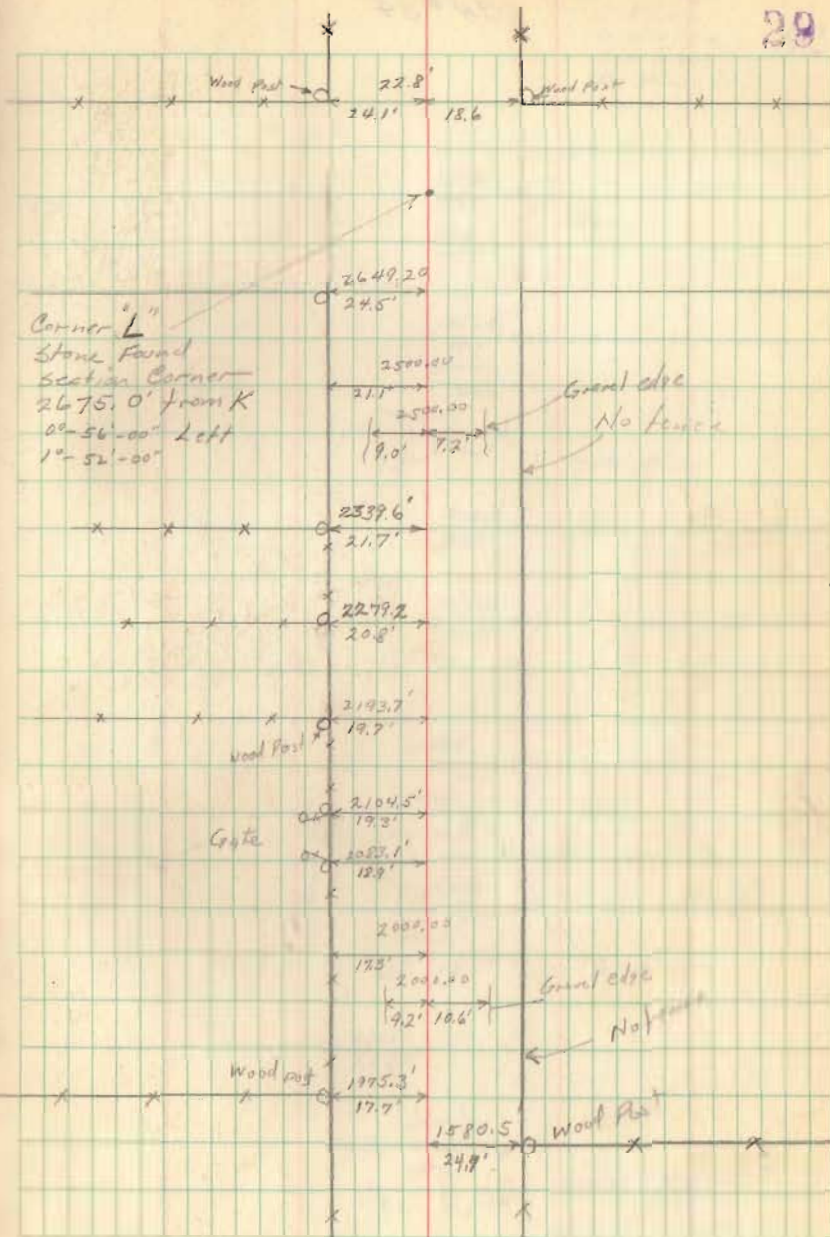 29
Wood Post
22.8'
Wood Post
24.1'
18.6
2649.20
24.5'
Corner "L"
Stone Found
Section Corner
2675.0' from K
0°-56'-00" Left
1°-52'-00"
2500.00
21.1'
2500.00
Gravel edge
9.0'
7.2'
No fence
2339.6'
21.7'
2279.2
20.8'
2193.7'
19.7'
Wood Post
2104.5'
19.3'
Gate
2083.1'
18.9'
2000.00
17.5'
2000.00
Gravel edge
9.2'
10.6'
No fence
Wood post
1975.3'
17.7'
1580.5'
Wood Post
24.9'